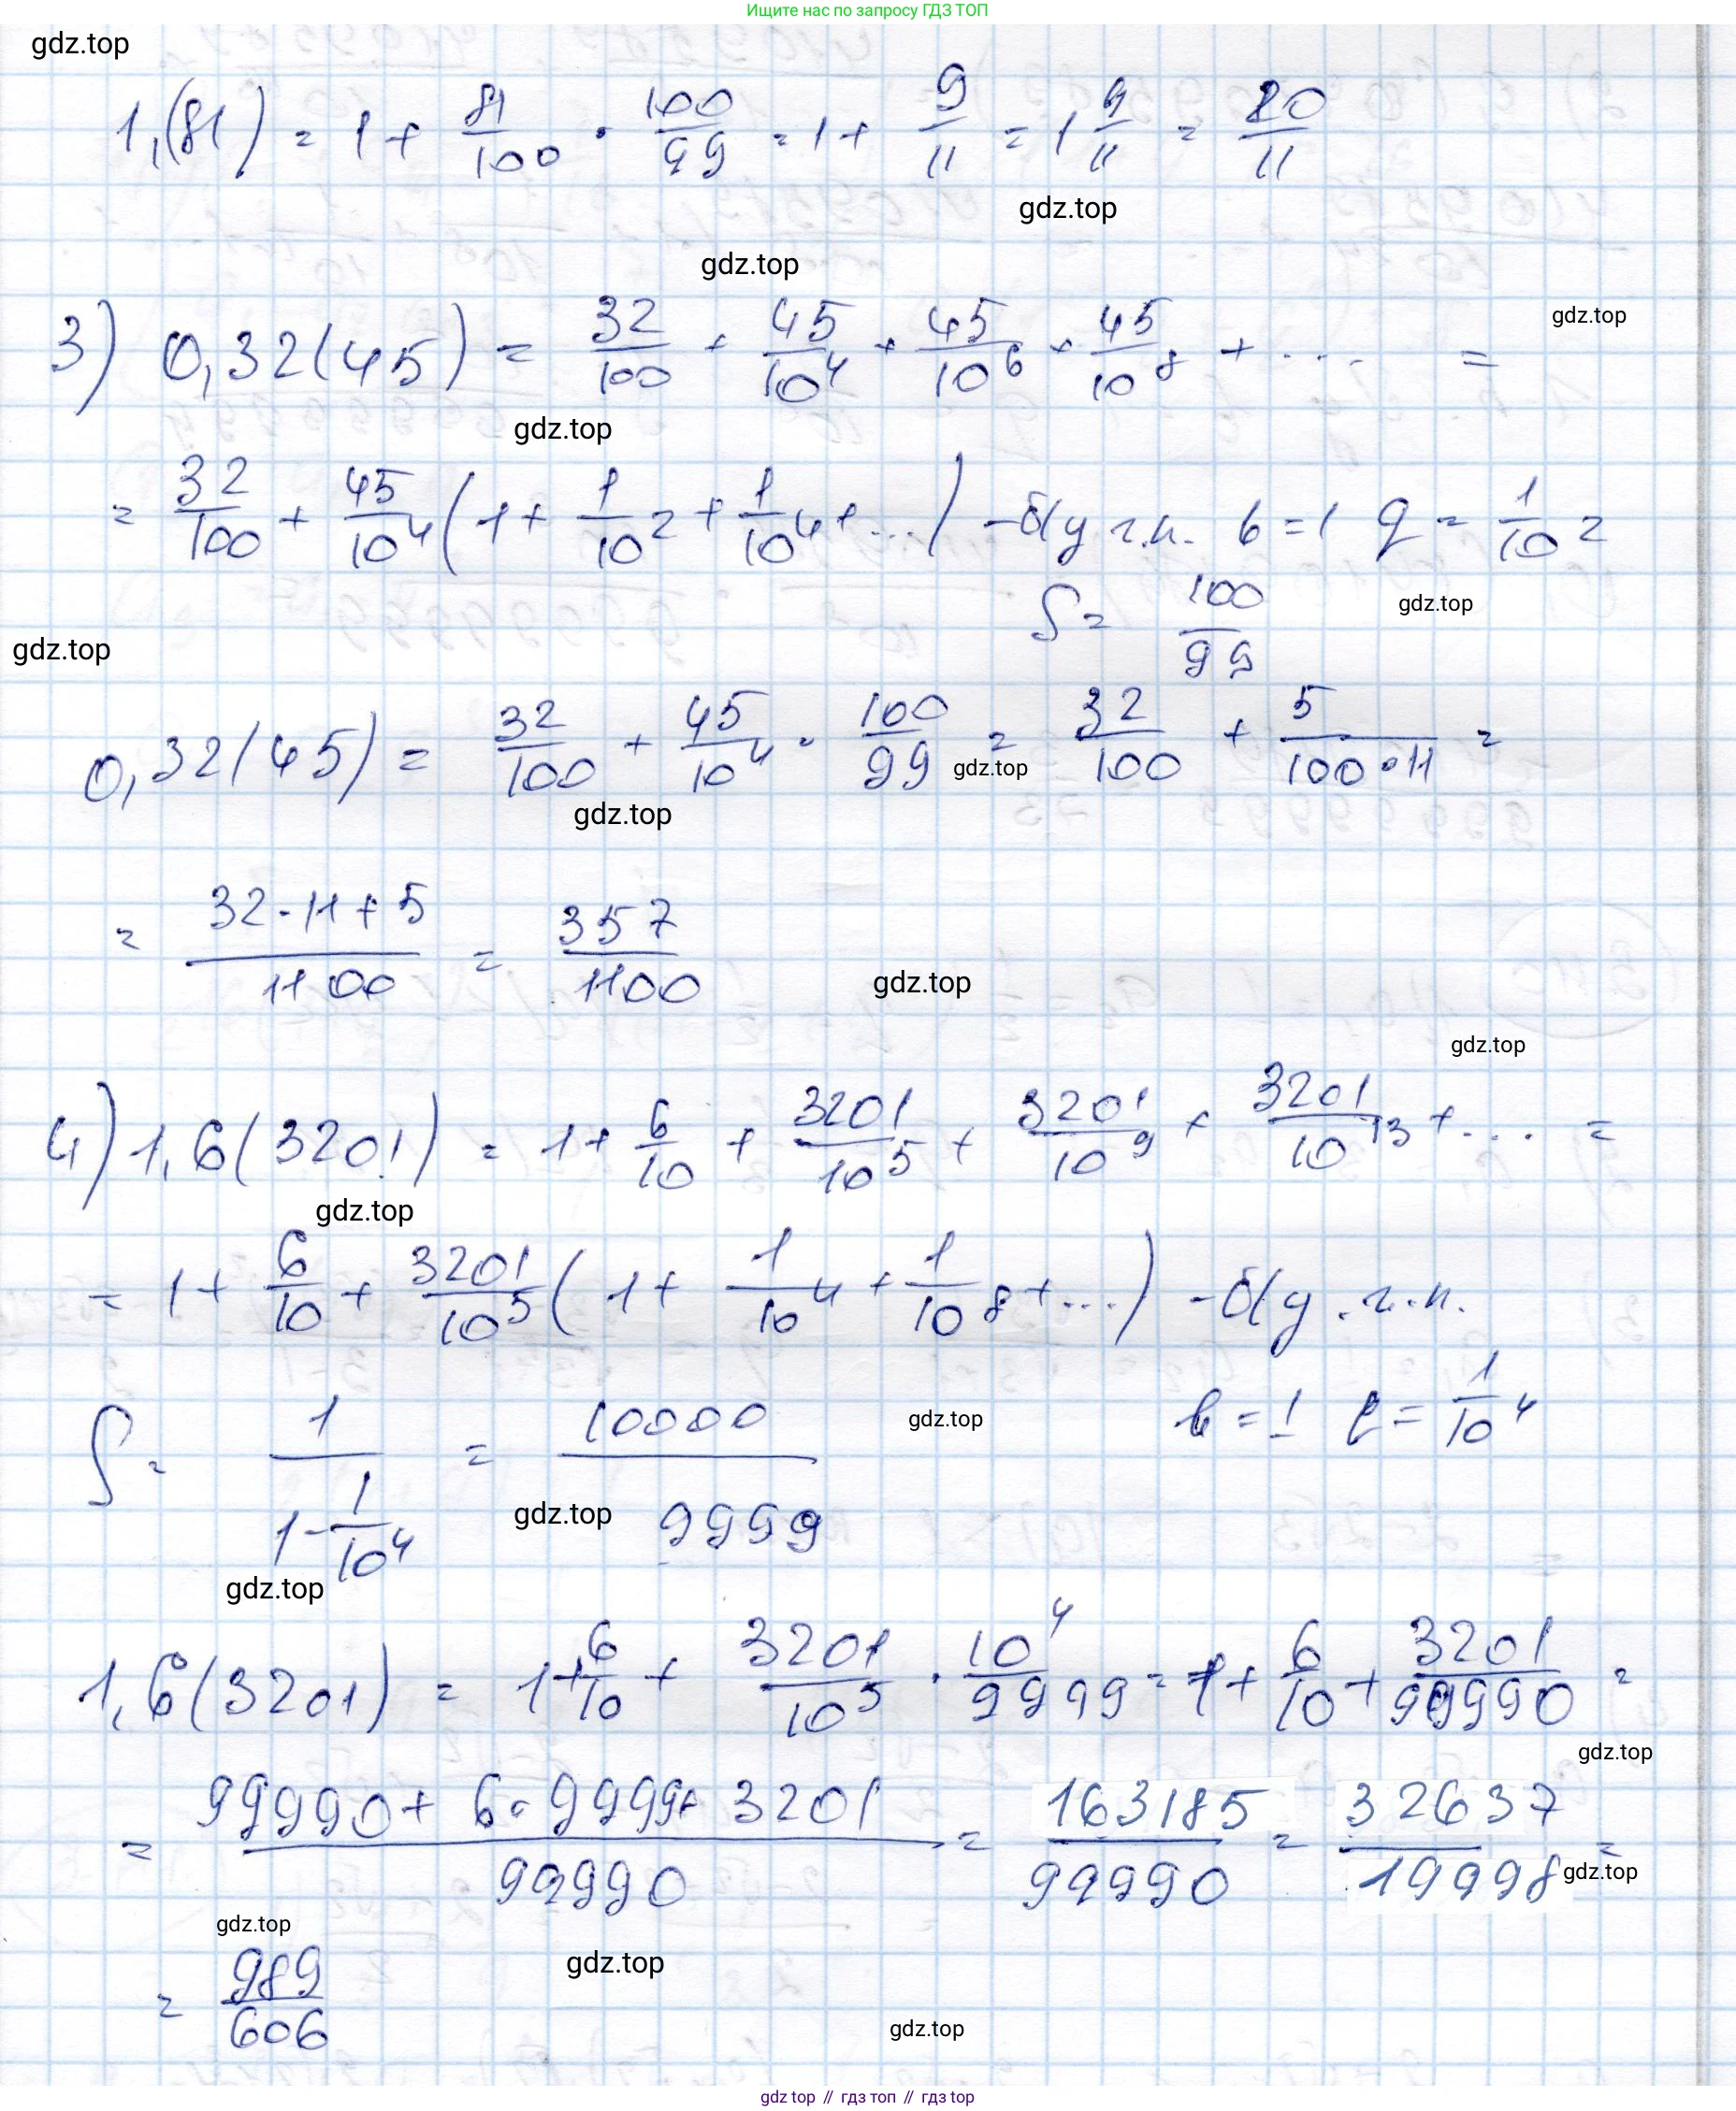 Ищите нас по запросу ГДЗ ТОП
gdz.top
1,(81) = 1 + 81/100 · 100/99 = 1 + 9/11 = 1 9/11 = 20/11
gdz.top
gdz.top
3) 0,32(45) = 32/100 + 45/10^4 + 45/10^6 + 45/10^8 + ... =
gdz.top
gdz.top
= 32/100 + 45/10^4 (1 + 1/10^2 + 1/10^4 + ...) - б/у г.п. b = 1 q = 1/10^2
S = 100/99
gdz.top
gdz.top
0,32(45) = 32/100 + 45/10^4 · 100/99 = 32/100 + 5/100·11 =
gdz.top
gdz.top
= 32·11+5/1100 = 357/1100
gdz.top
gdz.top
4) 1,6(3201) = 1 + 6/10 + 3201/10^5 + 3201/10^9 + 3201/10^13 + ... =
gdz.top
= 1 + 6/10 + 3201/10^5 (1 + 1/10^4 + 1/10^8 + ...) - б/у.г.п.
b = 1 q = 1/10^4
S = 1/1-1/10^4 = 10000/9999
gdz.top
gdz.top
gdz.top
1,6(3201) = 1+6/10 + 3201/10^5 · 10^4/9999 = 1 + 6/10 + 3201/99990 =
gdz.top
= 99990 + 6·9999+ 3201/99990 = 163185/99990 = 32637/19998 =
gdz.top
gdz.top
= 989/606
gdz.top
gdz.top
gdz top // гдз топ // gdz top